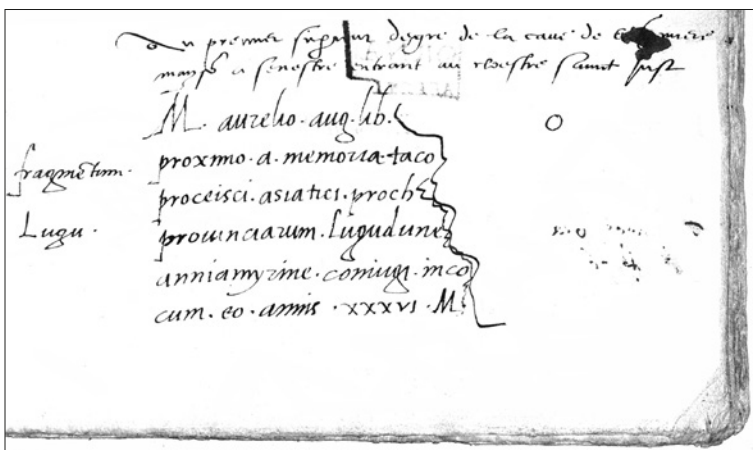 Au premier superieur degre de la cave de la premiere
mayson a senestre entrant au cloestre sainct just
M. aurelio. aug. lib.
fragmentum.
proximo. a. memoria. taco
proceisci. asiatici. proche
Lugu.
prouinciarum. lugudune
anniamyrine. coniugi. inco
cum. eo. annis. xxxvi. M.